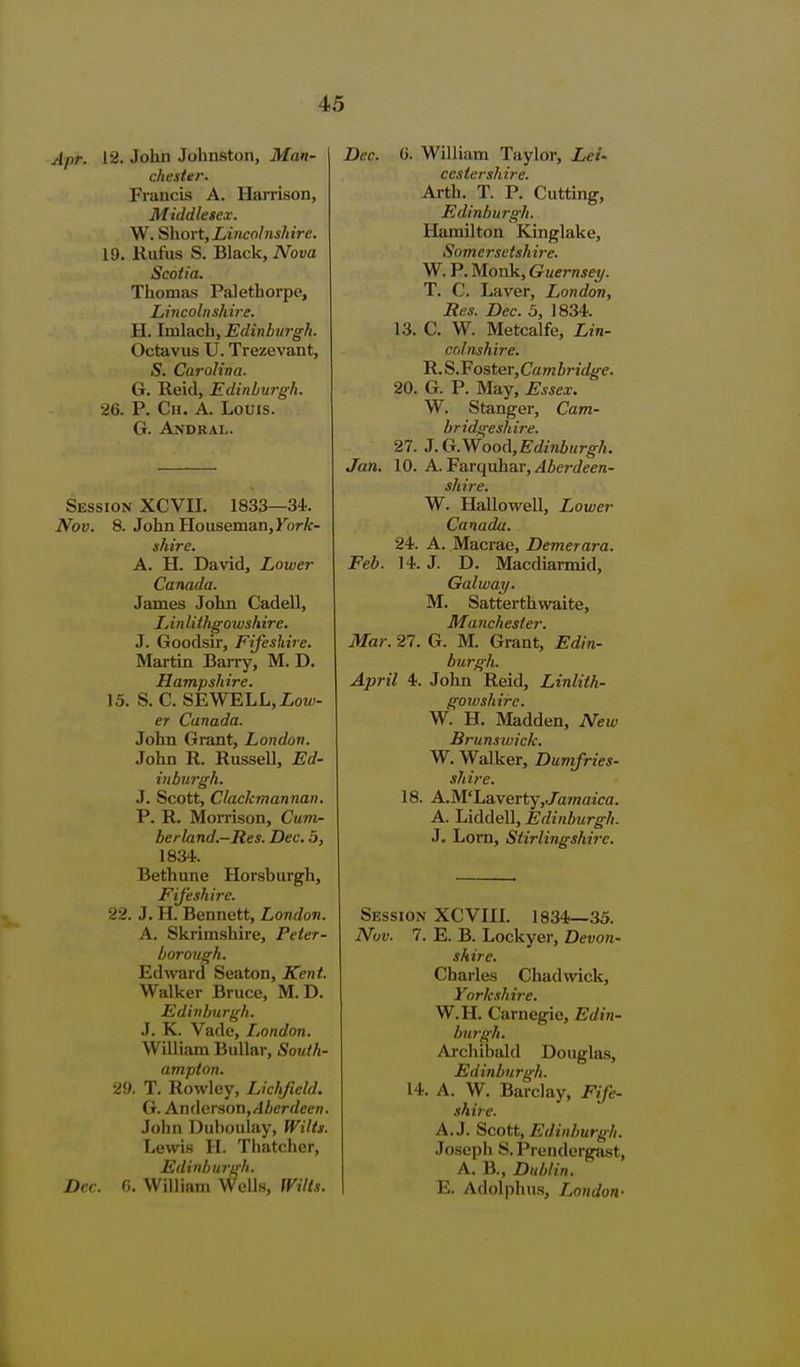 45
Apr. 12. John Johnston, Man-
chester.
Francis A. Harrison,
Middlesex.
W. Short, Lincolnshire.
19. Rufus S. Black, Nova
Scotia.
Thomas Palethorpe,
Lincolnshire.
H. Imlach, Edinburgh.
Octavus U. Trezevant,
S. Carolina.
G. Reid, Edinburgh.
26. P. CH. A. LOUIS.
G. ANDRAL.
SESSION XCVII. 1833—34.
Nov. 8. John Houseman, York-
shire.
A. H. David, Lower
Canada.
James John Cadell,
Linlithgowshire.
J. Goodsir, Fifeshire.
Martin Barry, M. D.
Hampshire.
15. S. C. SEWELL, Low-
er Canada.
John Grant, London.
John R. Russell, Ed-
inburgh.
J. Scott, Clackmannan.
P. R. Morrison, Cum-
berland.-Res. Dec. 5,
1834.
Bethune Horsburgh,
Fifeshire.
22. J. H. Bennett, London.
A. Skrimshire, Peter-
borough.
Edward Seaton, Kent.
Walker Bruce, M. D.
Edinburgh.
J. K. Vade, London.
William Bullar, South-
ampton.
29. T. Rowley, Lichfield.
G. Anderson, Aberdeen.
John Duboulay, Wilts.
Lewis H. Thatcher,
Edinburgh.
Dec. 6. William Wells, Wilts.
Dec. 6. William Taylor, Lei-
cestershire.
Arth. T. P. Cutting,
Edinburgh.
Hamilton Kinglake,
Somersetshire.
W. P. Monk, Guernsey.
T. C. Laver, London,
Res. Dec. 5, 1834.
13. C. W. Metcalfe, Lin-
colnshire.
R. S. Foster, Cambridge.
20. G. P. May, Essex.
W. Stanger, Cam-
bridgeshire.
27. J. G. Wood, Edinburgh.
Jan. 10. A. Farquhar, Aberdeen-
shire.
W. Hallowell, Lower
Canada.
24. A. Macrae, Demerara.
Feb. 14. J. D. Macdiarmid,
Galway.
M. Satterthwaite,
Manchester.
Mar. 27. G. M. Grant, Edin-
burgh.
April 4. John Reid, Linlith-
gowshire.
W. H. Madden, New
Brunswick.
W. Walker, Dumfries-
shire.
18. A. M‘Laverty, Jamaica.
A. Liddell, Edinburgh.
J. Lorn, Stirlingshire.
SESSION XCVIII. 1834—35.
Nov. 7. E. B. Lockyer, Devon-
shire.
Charles Chadwick,
Yorkshire.
W. H. Carnegie, Edin-
burgh.
Archibald Douglas,
Edinburgh.
14. A. W. Barclay, Fife-
shire.
A. J. Scott, Edinburgh.
Joseph S. Prendergast,
A. B., Dublin.
E. Adolphus, London.